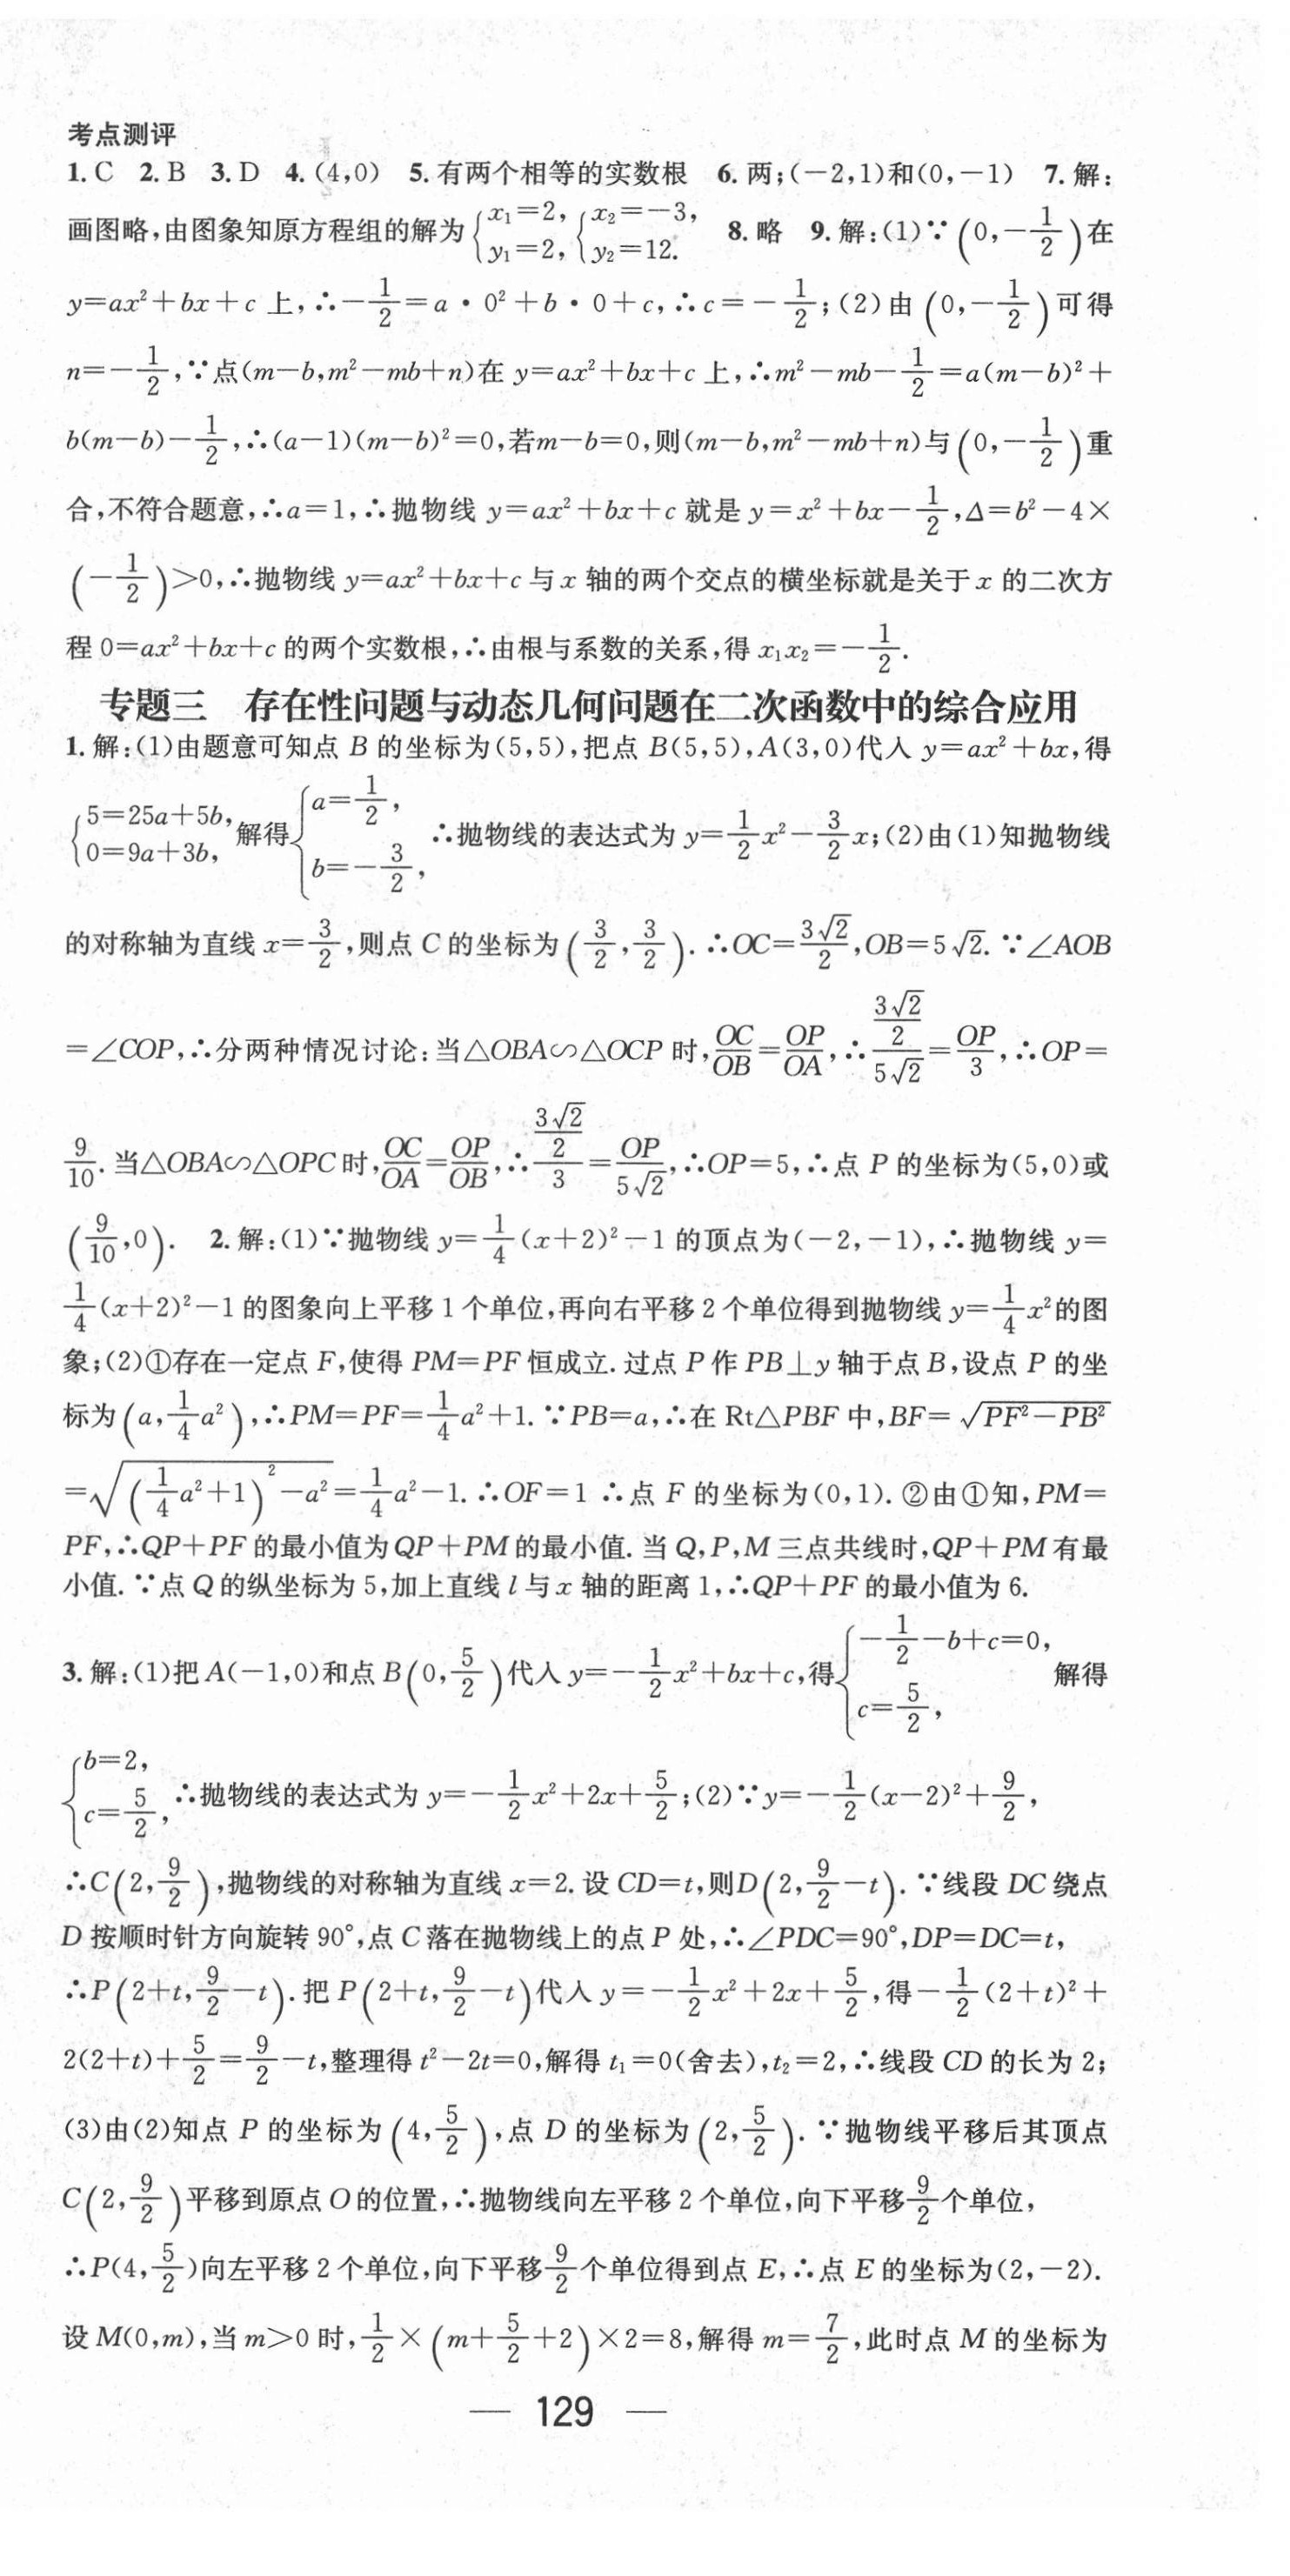 考点测评
1. C 2. B 3. D 4. (4,0) 5. 有两个相等的实数根 6. 两;(-2,1)和(0,-1) 7. 解:
画图略,由图象知原方程组的解为{x₁=2, y₁=2, {x₂=-3, y₂=12. 8. 略 9. 解:(1)∵(0,-1/2)在
y=ax²+bx+c 上,∴-1/2=a·0²+b·0+c,∴c=-1/2;(2)由(0,-1/2)可得
n=-1/2,∵点(m-b,m²-mb+n)在 y=ax²+bx+c 上,∴m²-mb-1/2=a(m-b)²+
b(m-b)-1/2,∴(a-1)(m-b)²=0,若m-b=0,则(m-b,m²-mb+n)与(0,-1/2)重
合,不符合题意,∴a=1,∴抛物线 y=ax²+bx+c 就是 y=x²+bx-1/2,Δ=b²-4×
(-1/2)>0,∴抛物线 y=ax²+bx+c 与 x 轴的两个交点的横坐标就是关于 x 的二次方
程 0=ax²+bx+c 的两个实数根,∴由根与系数的关系,得 x₁x₂=-1/2.
专题三 存在性问题与动态几何问题在二次函数中的综合应用
1. 解:(1)由题意可知点 B 的坐标为(5,5),把点 B(5,5),A(3,0)代入 y=ax²+bx,得
{5=25a+5b, 0=9a+3b, 解得{a=1/2, b=-3/2, ∴抛物线的表达式为 y=1/2x²-3/2x;(2)由(1)知抛物线
的对称轴为直线 x=3/2,则点 C 的坐标为(3/2,3/2).∴OC=3√2/2,OB=5√2.∵∠AOB
=∠COP,∴分两种情况讨论:当△OBA∽△OCP 时,OC/OB=OP/OA,∴(3√2/2)/(5√2)=OP/3,∴OP=
9/10.当△OBA∽△OPC 时,OC/OA=OP/OB,∴(3√2/2)/3=OP/(5√2),∴OP=5,∴点 P 的坐标为(5,0)或
(9/10,0). 2. 解:(1)∵抛物线 y=1/4(x+2)²-1 的顶点为(-2,-1),∴抛物线 y=
1/4(x+2)²-1 的图象向上平移 1 个单位,再向右平移 2 个单位得到抛物线 y=1/4x²的图
象;(2)①存在一定点 F,使得 PM=PF 恒成立.过点 P 作 PB⊥y 轴于点 B,设点 P 的坐
标为(a,1/4a²),∴PM=PF=1/4a²+1.∵PB=a,∴在 Rt△PBF 中,BF=√(PF²-PB²)
=√((1/4a²+1)²-a²)=1/4a²-1.∴OF=1 ∴点 F 的坐标为(0,1).②由①知,PM=
PF,∴QP+PF 的最小值为 QP+PM 的最小值.当 Q,P,M 三点共线时,QP+PM 有最
小值.∵点 Q 的纵坐标为 5,加上直线 l 与 x 轴的距离 1,∴QP+PF 的最小值为 6.
3. 解:(1)把 A(-1,0)和点 B(0,5/2)代入 y=-1/2x²+bx+c,得{-1/2-b+c=0, c=5/2, 解得
{b=2, c=5/2, ∴抛物线的表达式为 y=-1/2x²+2x+5/2;(2)∵y=-1/2(x-2)²+9/2,
∴C(2,9/2),抛物线的对称轴为直线 x=2.设 CD=t,则D(2,9/2-t).∵线段 DC 绕点
D 按顺时针方向旋转 90°,点 C 落在抛物线上的点 P 处,∴∠PDC=90°,DP=DC=t,
∴P(2+t,9/2-t).把 P(2+t,9/2-t)代入 y=-1/2x²+2x+5/2,得-1/2(2+t)²+
2(2+t)+5/2=9/2-t,整理得 t²-2t=0,解得 t₁=0(舍去),t₂=2,∴线段 CD 的长为 2;
(3)由(2)知点 P 的坐标为(4,5/2),点 D 的坐标为(2,5/2).∵抛物线平移后其顶点
C(2,9/2)平移到原点 O 的位置,∴抛物线向左平移 2 个单位,向下平移9/2个单位,
∴P(4,5/2)向左平移 2 个单位,向下平移9/2个单位得到点 E,∴点 E 的坐标为(2,-2).
设 M(0,m),当 m>0 时,1/2×(m+5/2+2)×2=8,解得 m=7/2,此时点 M 的坐标为
— 129 —